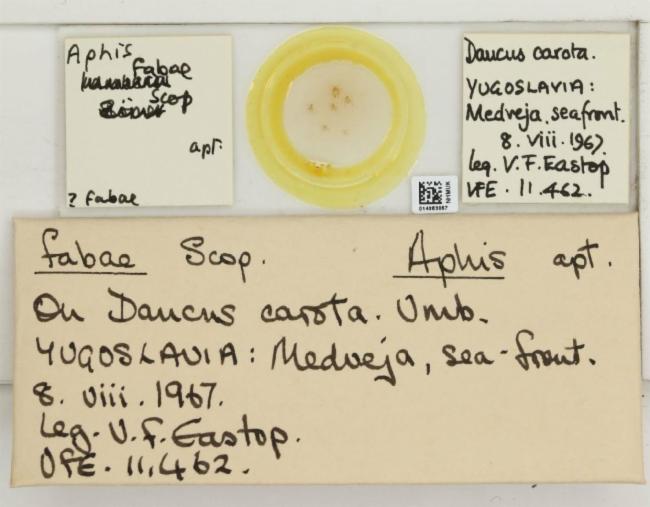 Aphis
Fabae
Scop
apt.
? Fabae
Daucus carota.
YUGOSLAVIA:
Medveja, seafront.
8. viii. 1967
leg. V.F. Eastop
VFE. 11.462.
NHMUK
014983987
fabae Scop. Aphis apt.
On Daucus carota. Umb.
YUGOSLAVIA: Medveja, sea-front.
8. viii. 1967.
Leg. V.F. Eastop.
VFE. 11,462.